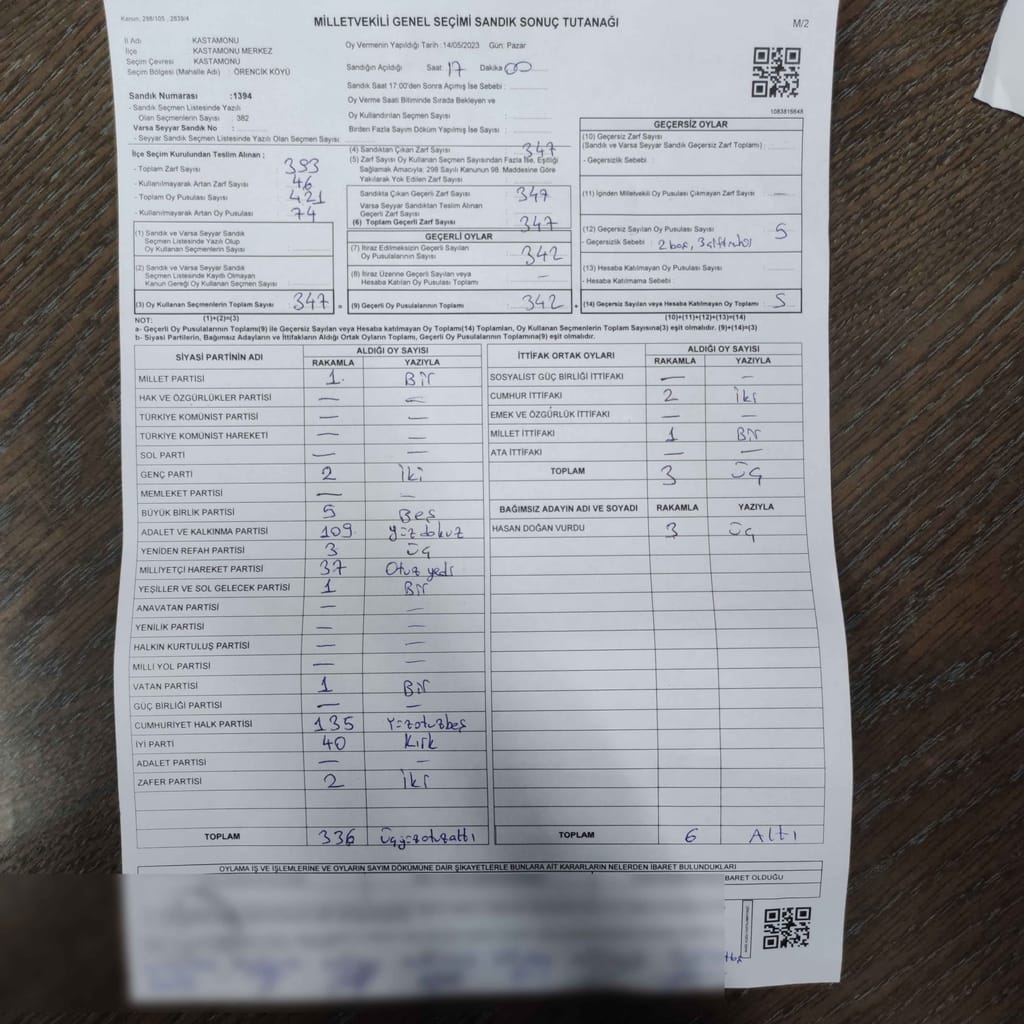 Kanun: 298/105 ; 2839/4
MİLLETVEKİLİ GENEL SEÇİMİ SANDIK SONUÇ TUTANAĞI
M/2
İl Adı KASTAMONU
İlçe KASTAMONU MERKEZ
Seçim Çevresi KASTAMONU
Seçim Bölgesi (Mahalle Adı) : ÖRENCİK KÖYÜ
Sandık Numarası :1394
- Sandık Seçmen Listesinde Yazılı
Olan Seçmenlerin Sayısı : 382
Varsa Seyyar Sandık No :
- Seyyar Sandık Seçmen Listesinde Yazılı Olan Seçmen Sayısı :
Oy Vermenin Yapıldığı Tarih :14/05/2023 Gün: Pazar
Sandığın Açıldığı Saat: 17 Dakika: 00
Sandık Saat 17:00'den Sonra Açımış İse Sebebi :
Oy Verme Saati Bitiminde Sırada Bekleyen ve
Oy Kullandırılan Seçmen Sayısı :
Birden Fazla Sayım Döküm Yapılmış İse Sayısı :
1083816848
İlçe Seçim Kurulundan Teslim Alınan ;
- Toplam Zarf Sayısı : 393
- Kullanılmayarak Artan Zarf Sayısı : 46
- Toplam Oy Pusulası Sayısı : 421
- Kullanılmayarak Artan Oy Pusulası : 74
(1) Sandık ve Varsa Seyyar Sandık
Seçmen Listesinde Yazılı Olup
Oy Kullanan Seçmenlerin Sayısı :
(2) Sandık ve Varsa Seyyar Sandık
Seçmen Listesinde Kayıtlı Olmayan
Kanun Gereği Oy Kullanan Seçmen Sayısı :
(3) Oy Kullanan Seçmenlerin Toplam Sayısı 347 =
(1)+(2)=(3)
(4) Sandıktan Çıkan Zarf Sayısı : 347
(5) Zarf Sayısı Oy Kullanan Seçmen Sayısından Fazla İse, Eşitliği
Sağlamak Amacıyla, 298 Sayılı Kanunun 98. Maddesine Göre
Yakılarak Yok Edilen Zarf Sayısı :
Sandıkta Çıkan Geçerli Zarf Sayısı : 347
Varsa Seyyar Sandıktan Teslim Alınan
Geçerli Zarf Sayısı :
(6) Toplam Geçerli Zarf Sayısı : 347
GEÇERLİ OYLAR
(7) İtiraz Edilmeksizin Geçerli Sayılan
Oy Pusulalarının Sayısı : 342
(8) İtiraz Üzerine Geçerli Sayılan veya
Hesaba Katılan Oy Pusulaları Toplamı : —
(9) Geçerli Oy Pusulalarının Toplamı : 342 +
GEÇERSİZ OYLAR
(10) Geçersiz Zarf Sayısı
(Sandık ve Varsa Seyyar Sandık Geçersiz Zarf Toplamı) :
- Geçersizlik Sebebi :
(11) İçinden Milletvekili Oy Pusulası Çıkmayan Zarf Sayısı : —
(12) Geçersiz Sayılan Oy Pusulası Sayısı : 5
- Geçersizlik Sebebi : 2 boş,
(13) Hesaba Katılmayan Oy Pusulası Sayısı :
- Hesaba Katılmama Sebebi :
(14) Geçersiz Sayılan veya Hesaba Katılmayan Oy Toplamı : 5
(10)+(11)+(12)+(13)=(14)
NOT:
a- Geçerli Oy Pusulalarının Toplamı(9) ile Geçersiz Sayılan veya Hesaba katılmayan Oy Toplamı(14) Toplamları, Oy Kullanan Seçmenlerin Toplam Sayısına(3) eşit olmalıdır. (9)+(14)=(3)
b- Siyasi Partilerin, Bağımsız Adayların ve İttifakların Aldığı Ortak Oyların Toplamı, Geçerli Oy Pusulalarının Toplamına(9) eşit olmalıdır.
SİYASİ PARTİNİN ADI ALDIĞI OY SAYISI
RAKAMLA YAZIYLA
MİLLET PARTİSİ 1 Bir
HAK VE ÖZGÜRLÜKLER PARTİSİ — —
TÜRKİYE KOMÜNİST PARTİSİ — —
TÜRKİYE KOMÜNİST HAREKETİ — —
SOL PARTİ — —
GENÇ PARTİ 2 İki
MEMLEKET PARTİSİ — —
BÜYÜK BİRLİK PARTİSİ 5 Beş
ADALET VE KALKINMA PARTİSİ 109 yüzdokuz
YENİDEN REFAH PARTİSİ 3 üç
MİLLİYETÇİ HAREKET PARTİSİ 37 Otuz yedi
YEŞİLLER VE SOL GELECEK PARTİSİ 1 Bir
ANAVATAN PARTİSİ — —
YENİLİK PARTİSİ — —
HALKIN KURTULUŞ PARTİSİ — —
MİLLİ YOL PARTİSİ — —
VATAN PARTİSİ 1 Bir
GÜÇ BİRLİĞİ PARTİSİ — —
CUMHURİYET HALK PARTİSİ 135 Yüzotuzbeş
İYİ PARTİ 40 Kırk
ADALET PARTİSİ — —
ZAFER PARTİSİ 2 İki
TOPLAM 336 Üçyüzotuzaltı
İTTİFAK ORTAK OYLARI ALDIĞI OY SAYISI
RAKAMLA YAZIYLA
SOSYALİST GÜÇ BİRLİĞİ İTTİFAKI — —
CUMHUR İTTİFAKI 2 İki
EMEK VE ÖZGÜRLÜK İTTİFAKI — —
MİLLET İTTİFAKI 1 Bir
ATA İTTİFAKI — —
TOPLAM 3 üç
BAĞIMSIZ ADAYIN ADI VE SOYADI RAKAMLA YAZIYLA
HASAN DOĞAN VURDU 3 üç
TOPLAM 6 Altı
OYLAMA İŞ VE İŞLEMLERİNE VE OYLARIN SAYIM DÖKÜMÜNE DAİR ŞİKAYETLERLE BUNLARA AİT KARARLARIN NELERDEN İBARET BULUNDUKLARI
BARET OLDUĞU